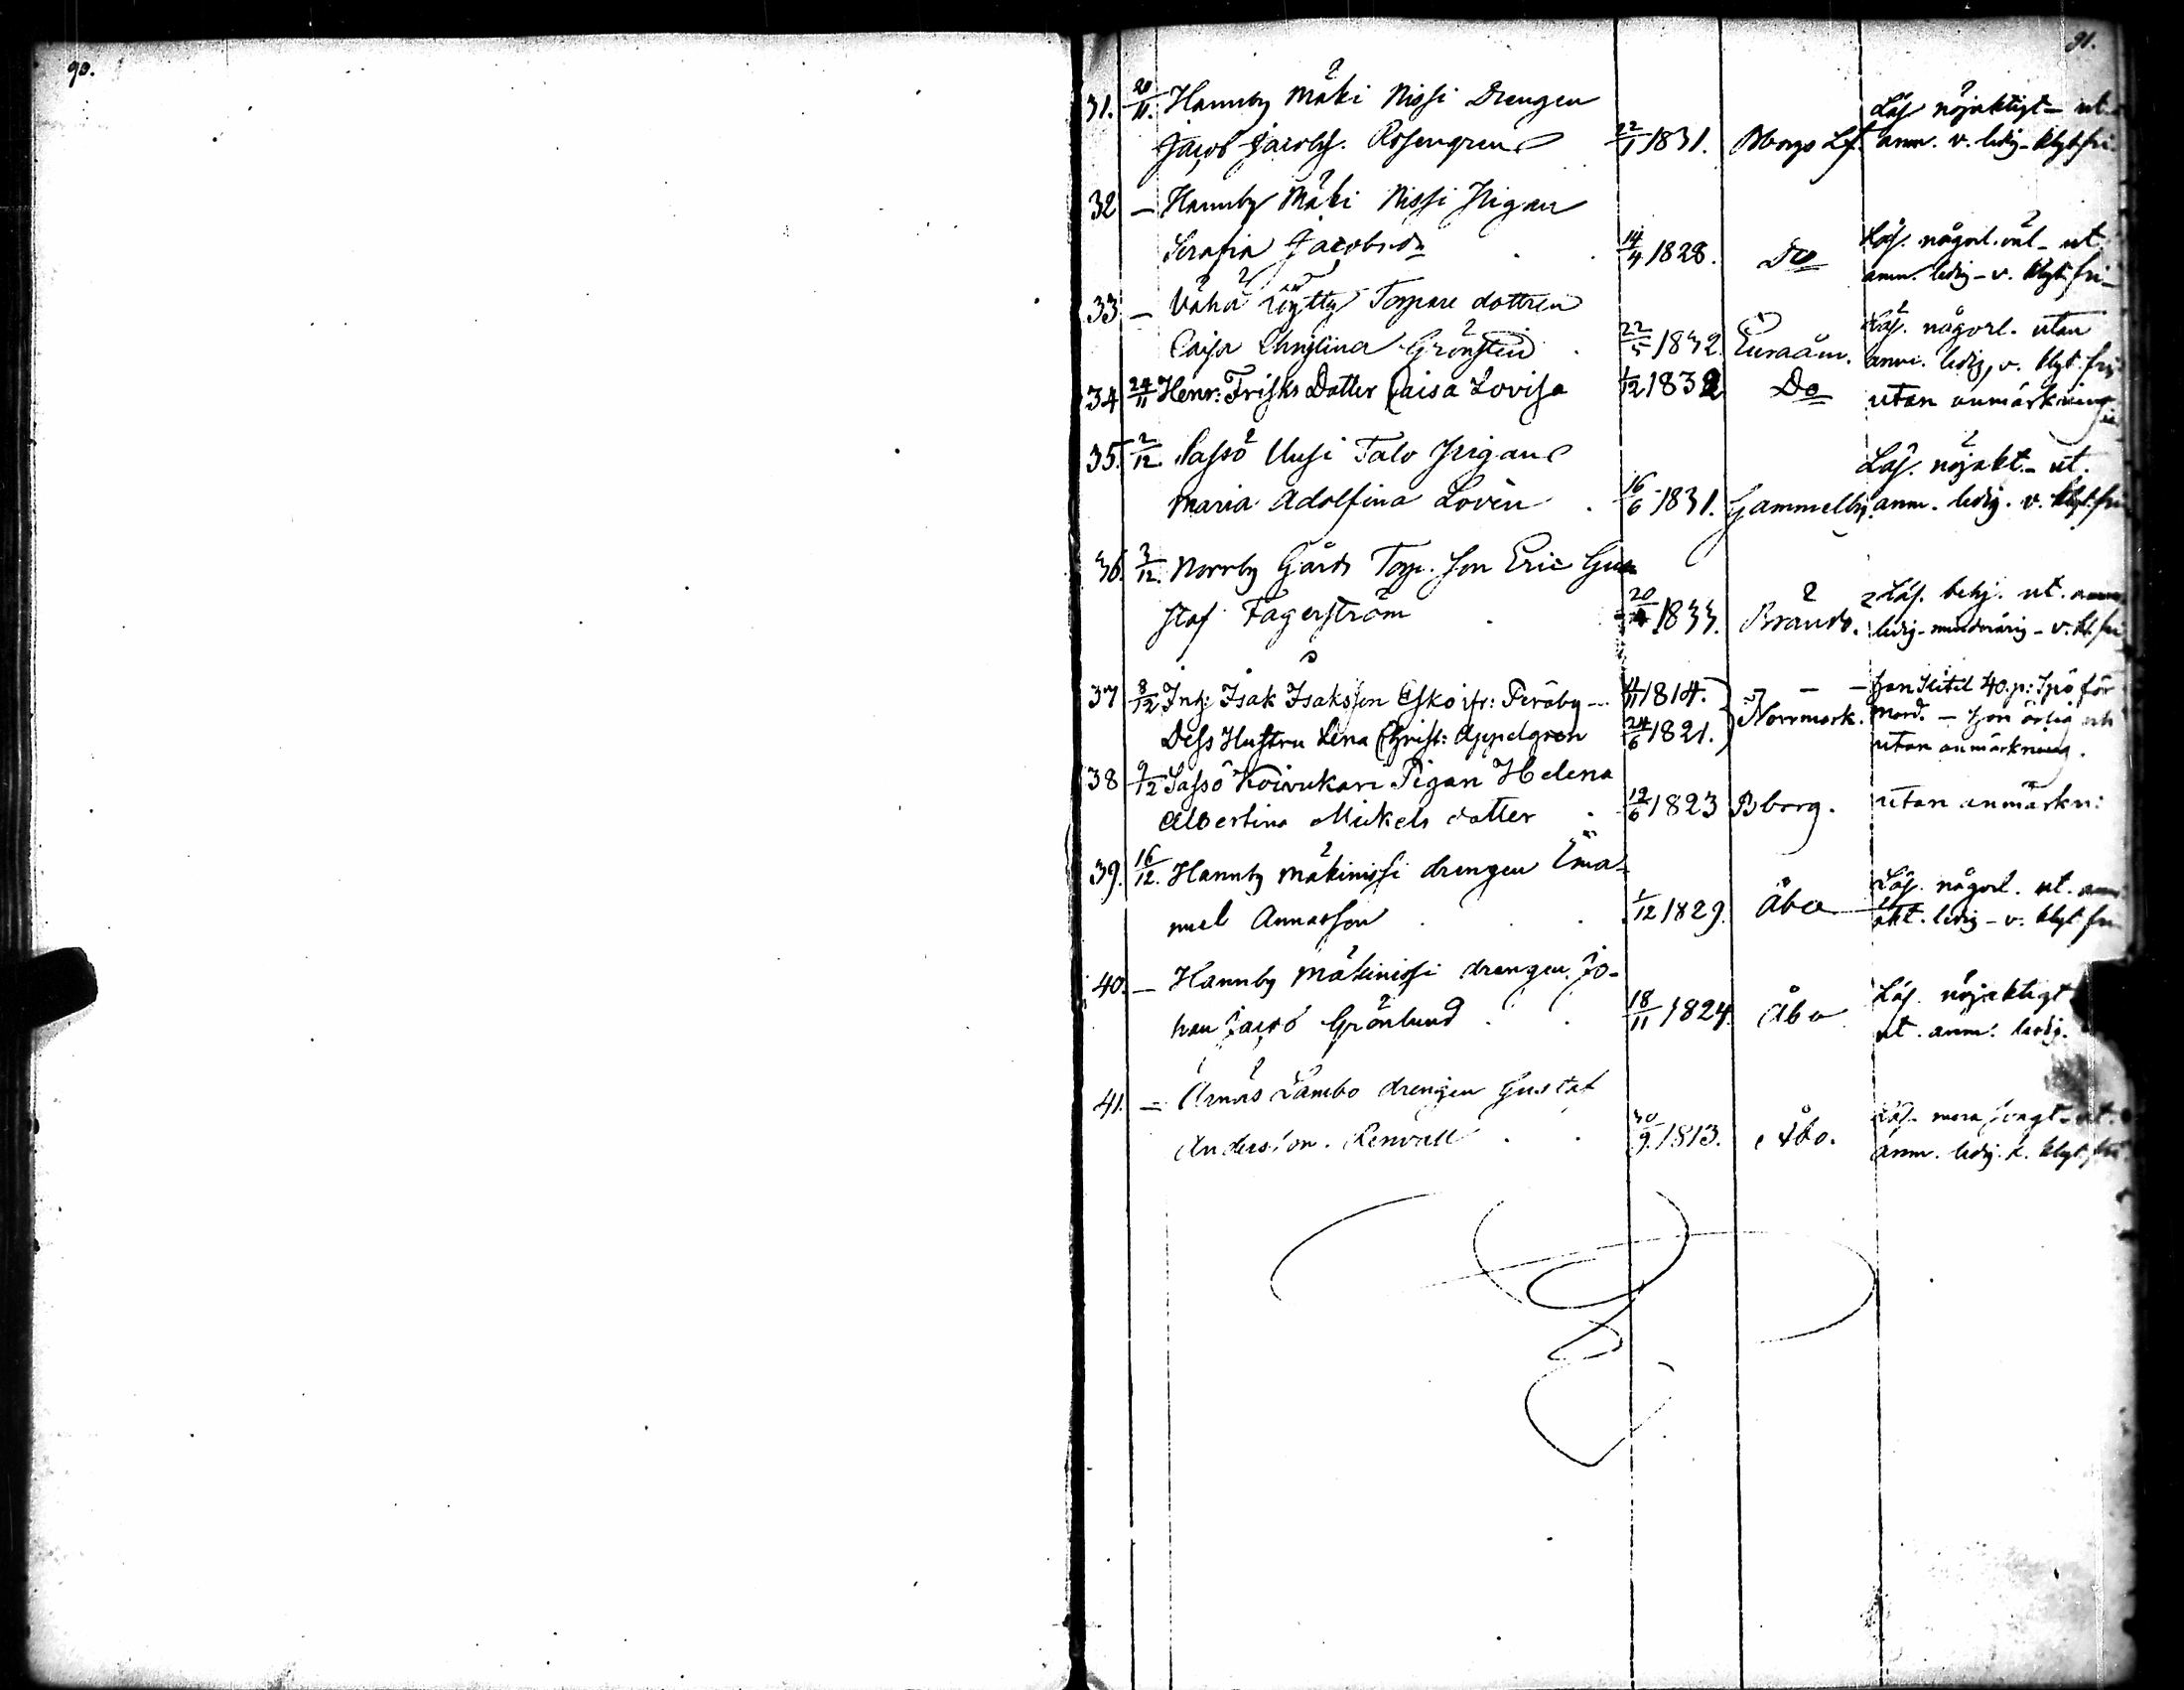 90.
91.
31. 20/11. Hannby Mäki Nissi Drengen Läs. nöjaktigt – ut.
Jacob Jacobss. Rosengren 22/1 1831. Bborgs Lf. anm. v. ledig – klyt. fri.
32 – Hannby Mäki Nissi Pigan
Serafia Jacobsdr 14/4 1828. Do Läs. någorl. väl – ut
anm. ledig – v. klyt. fri –
33 – Vähä Löytty Torpare dottren
Caisa Christina Grönsten 22/5 1832. Euraåm. Läs. någorl. utan
anm. ledig, v. klyt. fri
34 24/11 Henr: Frisks Dotter Caisa Lovisa 1/12 1832 Do utan anmärkning
35. 2/12 Sassö Uusi Talo Pigan Läs. nöjakt. – ut.
Maria Adolfina Lovén 16/6 1831. Gammelby. anm. ledig. v. klyt. fri
36. 3/12. Norrby Gårds Torp. Son Eric Gu
staf Fagerström 20/4 1833. Brands. Läs. behj. ut. anm
ledig – mindreårig – v. kl. fri
37 8/12 Inh: Isak Isaksson Esko ifr: Peråby – 4/11 1814. – – han slitit 40. p: spö för
Dess Hustru Lena Christ: Appelgren 24/6 1821. Norrmark. mord. – hon ärlig och
utan anmärkning.
38 9/12 Sassö Koivukari Pigan Helena
Albertina Mickels dotter 12/6 1823 Bborg. utan anmärkn:
39. 16/12. Hannby Mäkinissi drengen Ema-
nuel Annasson 1/12 1829. Åbo Läs. någorl. ut. anm
ledig – v. klyt. fri
40. – Hannby Mäkinissi drengen Jo-
han Jacob Grönlund 18/11 1824. Åbo Läs. nöjaktigt
ut. anm: ledig.
41. = Arnäs Lambo drengen Gustaf
Andersson Renvall 30/9. 1813. Åbo. Läs. mera svagt – ut.
anm. ledig. klyt. fri